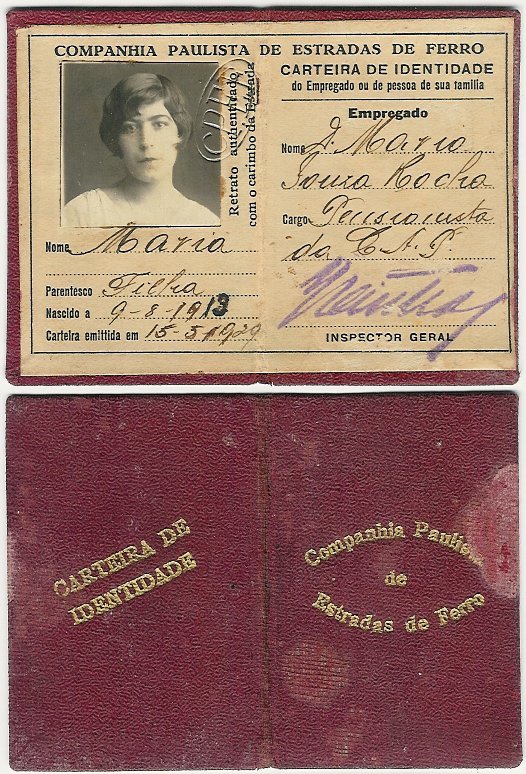 COMPANHIA PAULISTA DE ESTRADAS DE FERRO
Retrato authenticado
com o carimbo da Estrada
Nome Maria
Parentesco Filha
Nascido a 9-8-1913
Carteira emittida em 15-5-1929
CARTEIRA DE IDENTIDADE
do Empregado ou de pessoa de sua familia
Empregado
Nome D. Maria
Souza Rocha
Cargo Pensionista
da C.A.P.
INSPECTOR GERAL
CARTEIRA DE
IDENTIDADE
Companhia Paulista
de
Estradas de Ferro